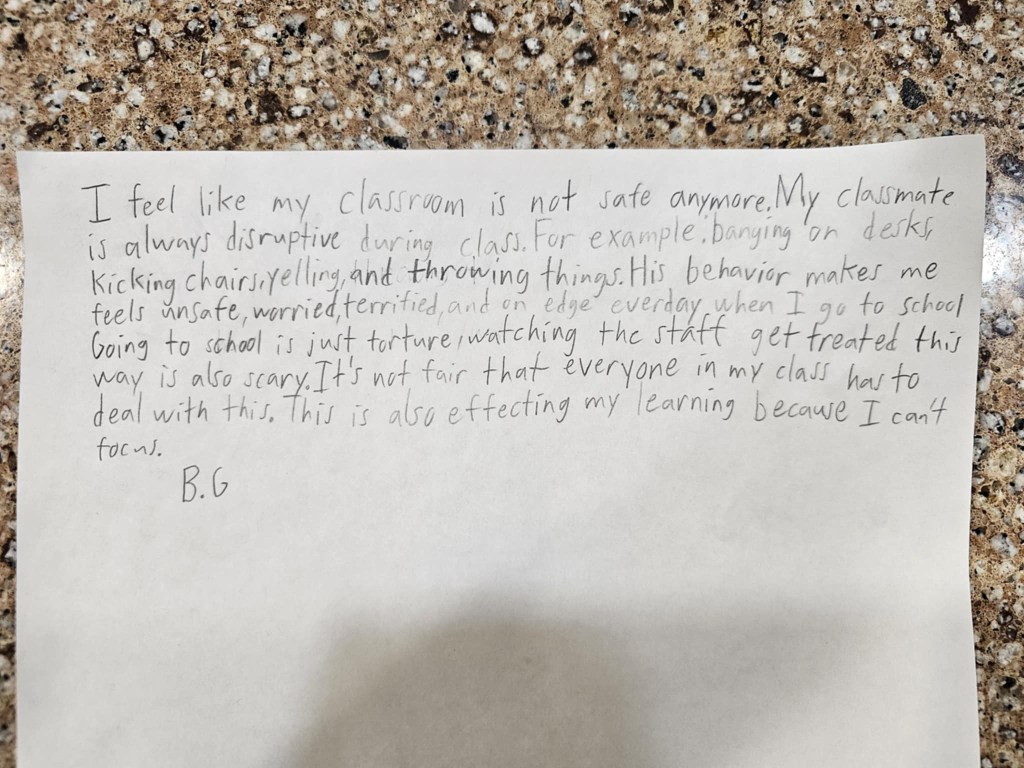 I feel like my classroom is not safe anymore. My classmate
is always disruptive during class. For example, banging on desks,
kicking chairs, yelling, and throwing things. His behavior makes me
feels unsafe, worried, terrified, and on edge everday when I go to school
Going to school is just torture, watching the staff get treated this
way is also scary. It's not fair that everyone in my class has to
deal with this. This is also effecting my learning because I can't
focus.
B.G